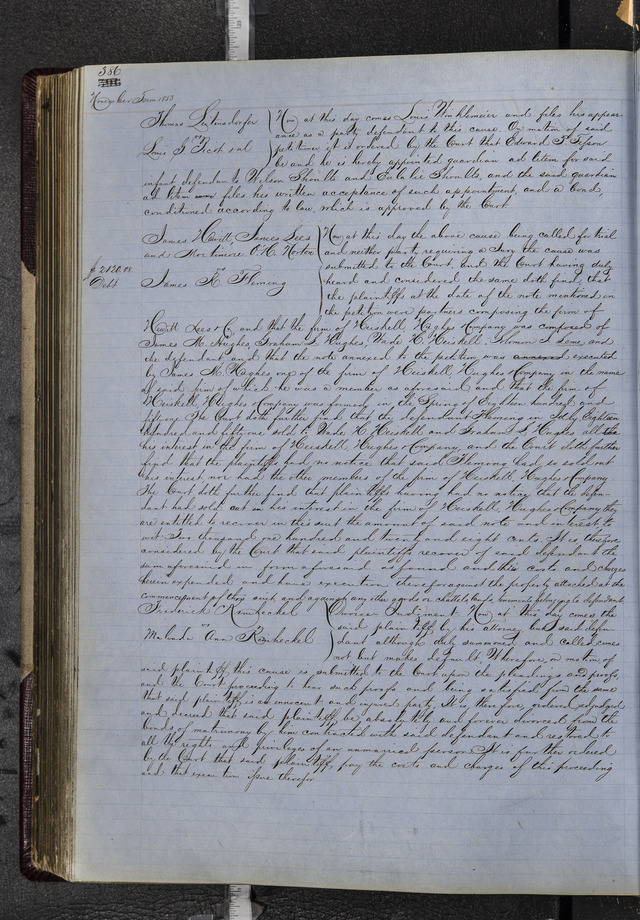 386
Term 1853
Thomas
vs
Louis
Now at this day comes Louis Winkelmeier and files his appear-
ance as a party defendant to this cause. On motion of said
petitioner it is ordered by the Court that Edward T.
be and he is hereby appointed guardian ad litem for said
infant defendants Wilson and Eulalie and the said guardian
ad litem files his written acceptance of such appointment, and a bond
conditioned according to law, which is approved by the Court
James Hewitt, James Lees
and Mortimore O.H. Norton
vs
James R. Fleming
$2120.08
Debt
Now at this day the above cause being called for trial
and neither party requiring a Jury the cause was
submitted to the Court, and the Court having duly
heard and considered the same doth find, that
the plaintiffs at the date of the note mentioned in
the petition were partners composing the firm of
Hewitt Lees & Co, and that the firm of Heiskell Hughes Company was composed of
James M. Hughes, Graham L. Hughes, Wade H. Heiskell, and
the defendant and that the note annexed to the petition, was executed
by James M. Hughes one of the firm of Heiskell, Hughes Company in the name
of said firm of which he was a member as aforesaid, and that the firm of
Heiskell Hughes Company was formed in the Spring of Eighteen hundred and
fifty. The Court doth further find that the defendant Fleming in Eighteen
hundred and fifty one sold to Wade H. Heiskell and Graham L. Hughes all
his interest in the firm of Heiskell Hughes Company and the Court doth further
find that the plaintiffs had no notice that said Fleming had so sold out
his interest nor had the other members of the firm of Heiskell, Hughes Company
The Court doth further find that plaintiffs having had no notice that the defen-
dant had sold out in his interest in the firm of Heiskell Hughes Company they
are entitled to recover in this suit the amount of said note and interest to
wit: Two thousand one hundred and twenty and eight cents. It is therefore
considered by the Court that said plaintiffs recover of said defendant the
sum aforesaid in form aforesaid found and their costs and charges
herein expended, and have execution therefor against the property attached at the
commencement of their suit and against any other goods chattels lands tenements belonging to defendant
Frederick
vs
Malinda Ann
Divorce Judgment. Now at this day comes the
said plaintiff by his attorney but said defen-
dant although duly summoned and called comes
not but makes default Wherefore, on motion of
said plaintiff, this cause is submitted to the Court upon the pleadings and proofs
and the Court proceeding to hear such proofs and being satisfied from the same
that said plaintiff is an innocent and injured party. It is, therefore, ordered adjudged
and decreed that said plaintiff be absolutely and forever divorced from the
bonds of matrimony by him contracted with said defendant and restored to
all the rights and privileges of an unmarried person. It is further ordered
by the Court that said plaintiff, pay the costs and charges of this proceeding
and that execution issue therefor